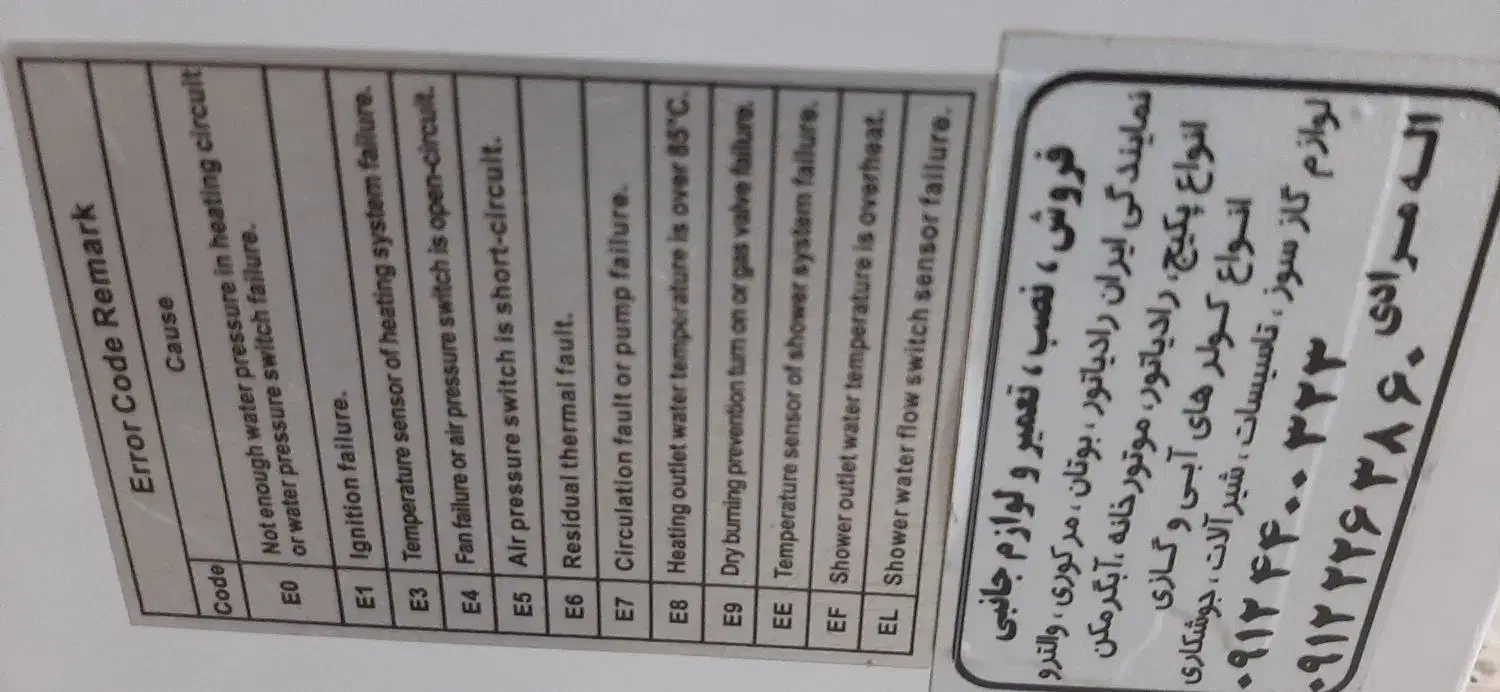 Error Code Remark
Code Cause
E0 Not enough water pressure in heating circult
or water pressure switch failure.
E1 Ignition failure.
E3 Temperature sensor of heating system failure.
E4 Fan failure or air pressure switch is open-circuit.
E5 Air pressure switch is short-circult.
E6 Residual thermal fault.
E7 Circulation fault or pump failure.
E8 Heating outlet water temperature is over 85°C.
E9 Dry burning prevention turn on or gas valve failure.
EE Temperature sensor of shower system failure.
EF Shower outlet water temperature is overheat.
EL Shower water flow switch sensor failure.
فروش ، نصب ، تعمیر و لوازم جانبی
نمایندگی ایران رادیاتور ، بوتان ، مرکوری ، والترو
انواع پکیج، رادیاتور، موتورخانه ،آبگرمکن
انواع کولر های آبی و گازی
لوازم گاز سوز ، تاسیسات ، شیرآلات ، جوشکاری
۰۹۱۲ ۴۴ ۰۰ ۳۲۳
۰۹۱۲ ۲۲۶ ۳۸ ۶۰ اله مرادی